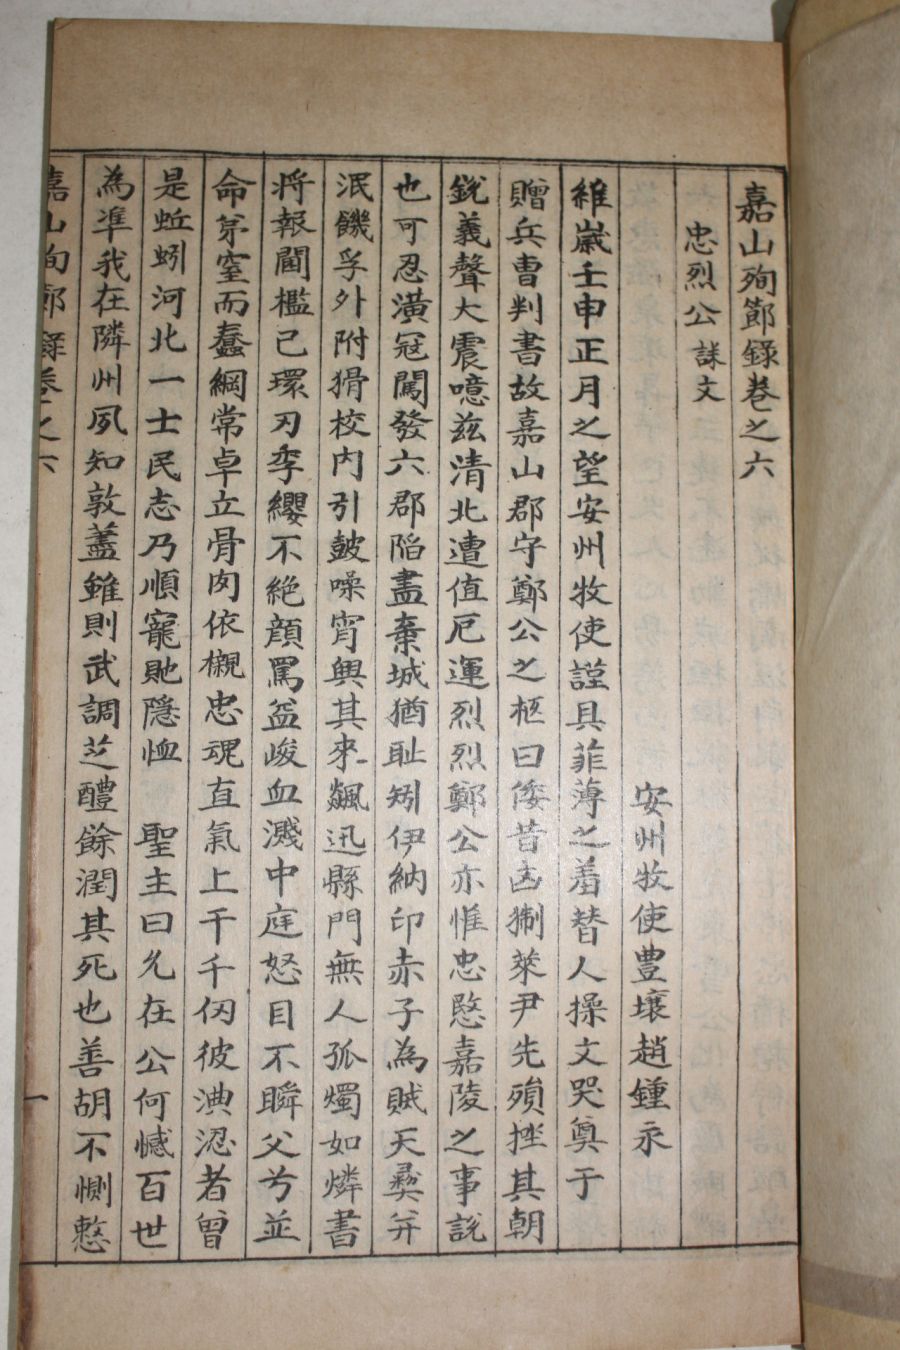 嘉山殉節錄卷之六
忠烈公誄文
安州牧使豊壤趙鍾永
維歲壬申正月之望安州牧使謹具菲薄之羞替人操文哭奠于
贈兵曺判書故嘉山郡守鄭公之柩曰倭昔凶猘萊尹先殞挫其朝
銳義聲大震噫玆清北遭值厄運烈烈鄭公亦惟忠愍嘉陵之事說
也可忍潢寇闖發六郡陷盡棄城猶耻矧伊納印赤子為賊天彛幷
泯饑孚外附猾校內引鼓噪宵興其來飆迅縣門無人孤燭如燐書
将報閫檻已環刃季纓不絶顔罵益峻血濺中庭怒目不瞬父兮並
命茅窒而蠢綱常卓立骨肉依櫬忠魂直氣上干千仞彼淟涊者曾
是蚯蚓河北一士民志乃順寵貤隱恤 聖主曰允在公何憾百世
為準我在隣州夙知敦藎雖則武調芝醴餘潤其死也善胡不惻憗
嘉山殉節錄卷之六
一